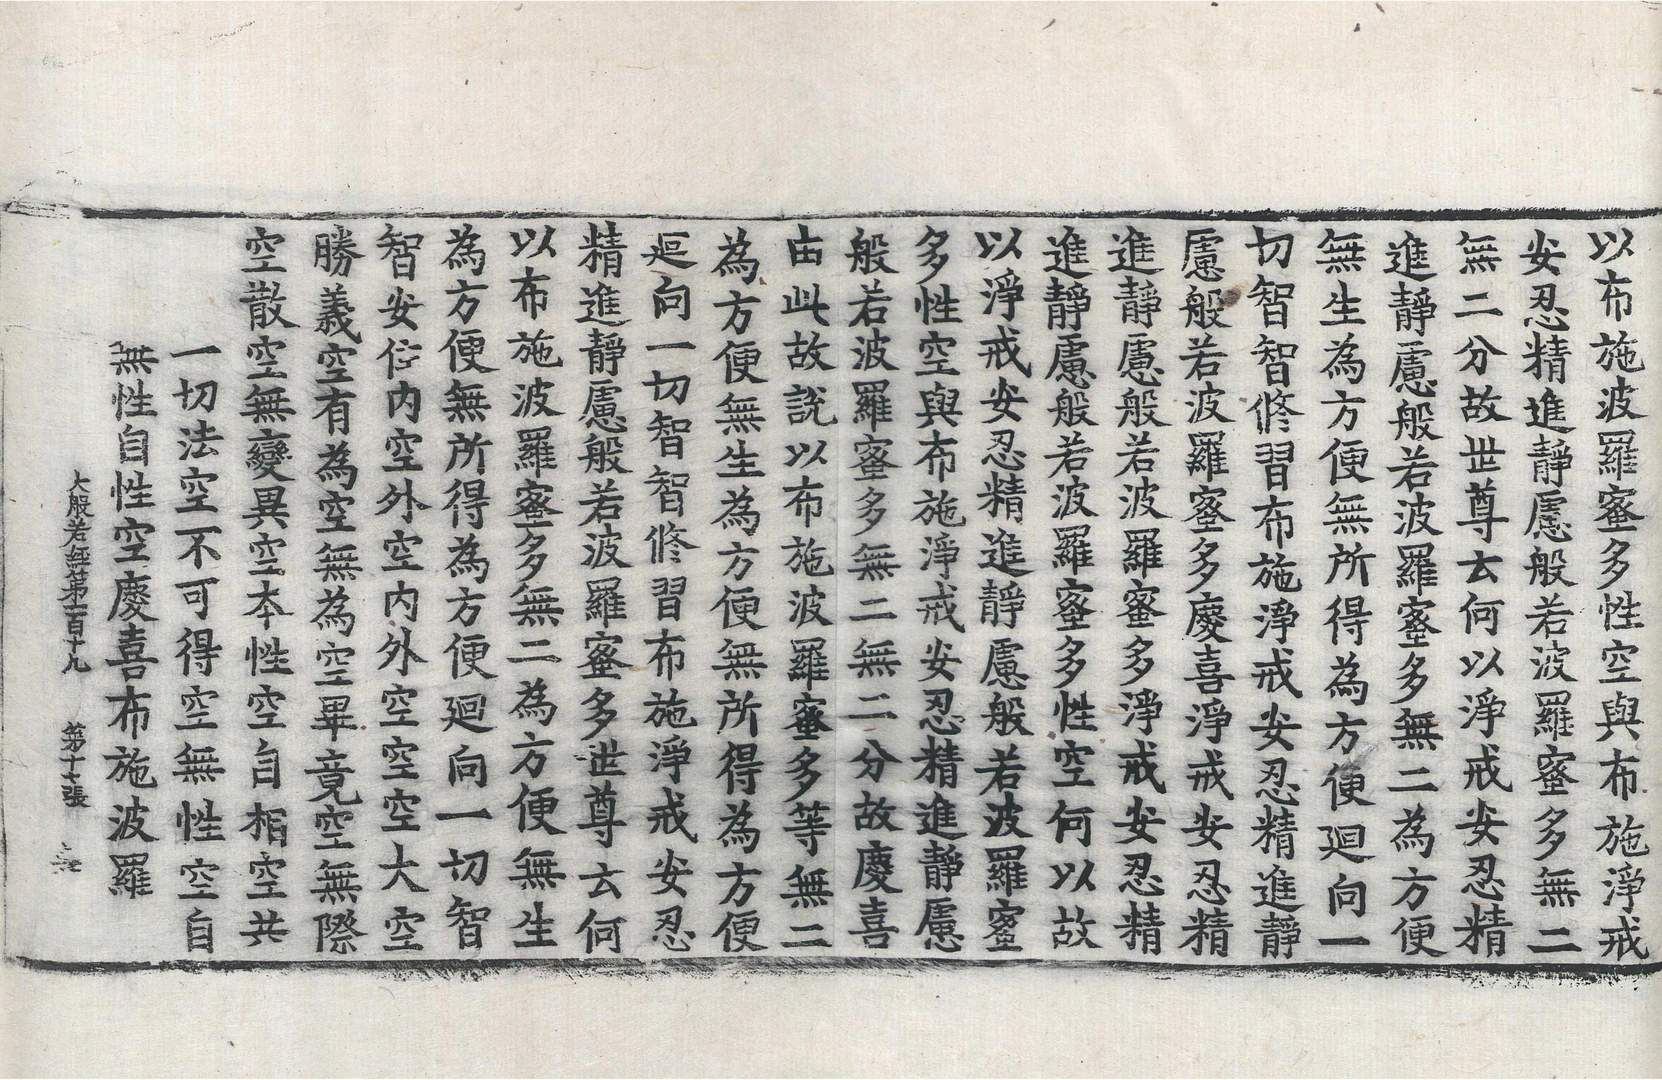 以布施波羅蜜多性空與布施淨戒
安忍精進靜慮般若波羅蜜多無二
無二分故世尊云何以淨戒安忍精
進靜慮般若波羅蜜多無二為方便
無生為方便無所得為方便迴向一
切智智修習布施淨戒安忍精進靜
慮般若波羅蜜多慶喜淨戒安忍精
進靜慮般若波羅蜜多淨戒安忍精
進靜慮般若波羅蜜多性空何以故
以淨戒安忍精進靜慮般若波羅蜜
多性空與布施淨戒安忍精進靜慮
般若波羅蜜多無二無二分故慶喜
由此故說以布施波羅蜜多等無二
為方便無生為方便無所得為方便
迴向一切智智修習布施淨戒安忍
精進靜慮般若波羅蜜多世尊云何
以布施波羅蜜多無二為方便無生
為方便無所得為方便迴向一切智
智安住內空外空內外空空空大空
勝義空有為空無為空畢竟空無際
空散空無變異空本性空自相空共
一切法空不可得空無性空自
無性自性空慶喜布施波羅
大般若經第一百十九 第十七張